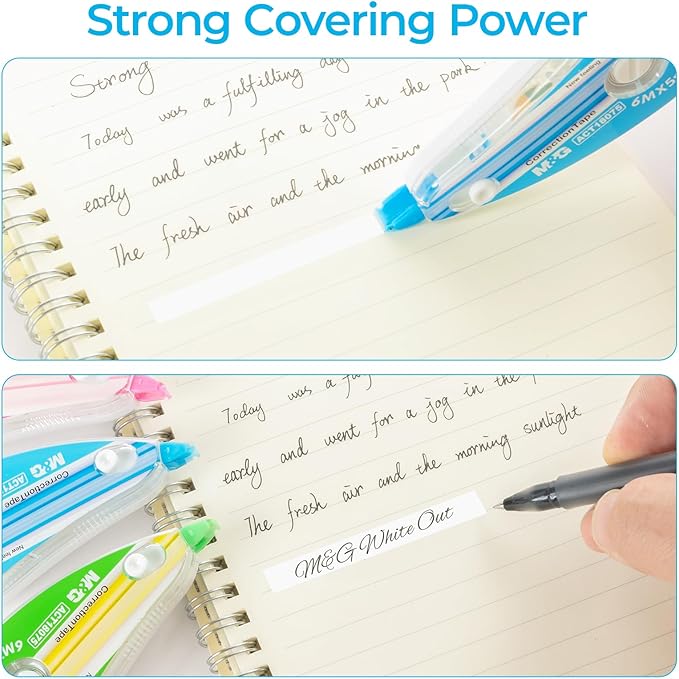 Strong Covering Power
Strong
Today was a fulfilling day
early and went for a jog in the park.
The fresh air and the morning
New feeling
CorrectionTape
M&G ACT18075 6MX5
Today was a
early and went for a jog in the
The fresh air and the morning sunlight
M&G White Out
M&G ACT18075
CorrectionTape
M&G ACT18075 6M
CorrectionTape